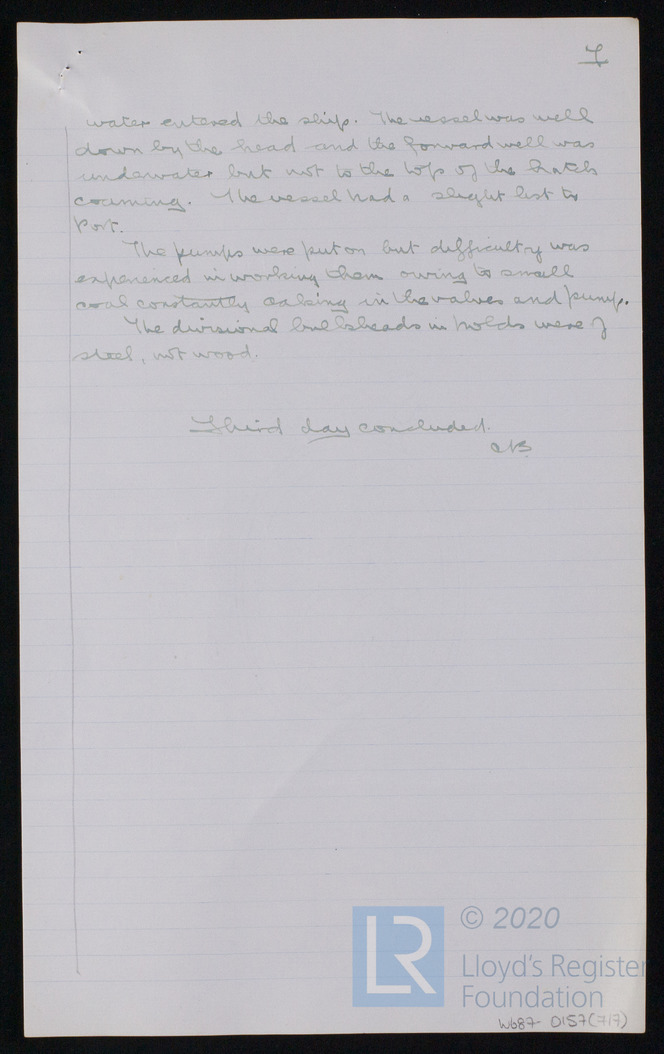 7
water entered the ship. The vessel was well
down by the head and the forward well was
underwater but not to the top of the hatch
coaming. The vessel had a slight list to
Port.
The pumps were put on but difficulty was
experienced in working them owing to small
coal constantly caking in the valves and pump.
The divisional bulkheads in holds were of
steel, not wood.
Third day concluded.
LR
© 2020
Lloyd's Register
Foundation
W687-0157(7/7)